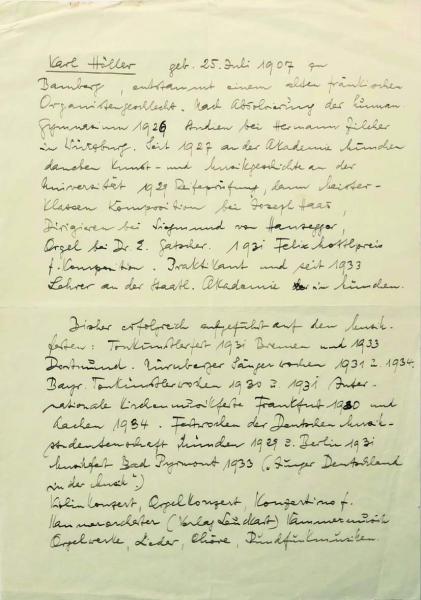 Karl Höller geb. 25. Juli 1907 zu
Bamberg, entstammt einem alten fränkischen
Organistengeschlecht. Nach Absolvierung des human.
Gymnasiums 1926 Studien bei Hermann Zilcher
in Würzburg. Seit 1927 an der Akademie München
daneben Kunst- und Musikgeschichte an der
Universität 1929 Reifeprüfung, dann Meister-
Klassen Komposition bei Joseph Haas,
Dirigieren bei Siegmund von Hausegger,
Orgel bei Dr. E. Gatscher. 1931 Felix Mottlpreis
f. Komposition. Praktikant und seit 1933
Lehrer an der Staatl. Akademie in München.
Bisher erfolgreich aufgeführt auf den Musik-
festen: Tonkünstlerfest 1931 Bremen und 1933
Dortmund. Nürnberger Sängerwochen 1931 u. 1934.
Bayr. Tonkünstlerwochen 1930 u. 1931 Inter-
nationale Kirchenmusikfeste Frankfurt 1930 und
Aachen 1934. Festwochen der Deutschen Musik-
studentenschaft München 1929 u. Berlin 1931
Musikfest Bad Pyrmont 1933 ("Junges Deutschland
in der Musik")
Violinkonzert, Orgelkonzert, Konzertino f.
Kammerorchester (Verlag Leuckart) Kammermusik
Orgelwerke, Lieder, Chöre, Rundfunkmusiken.